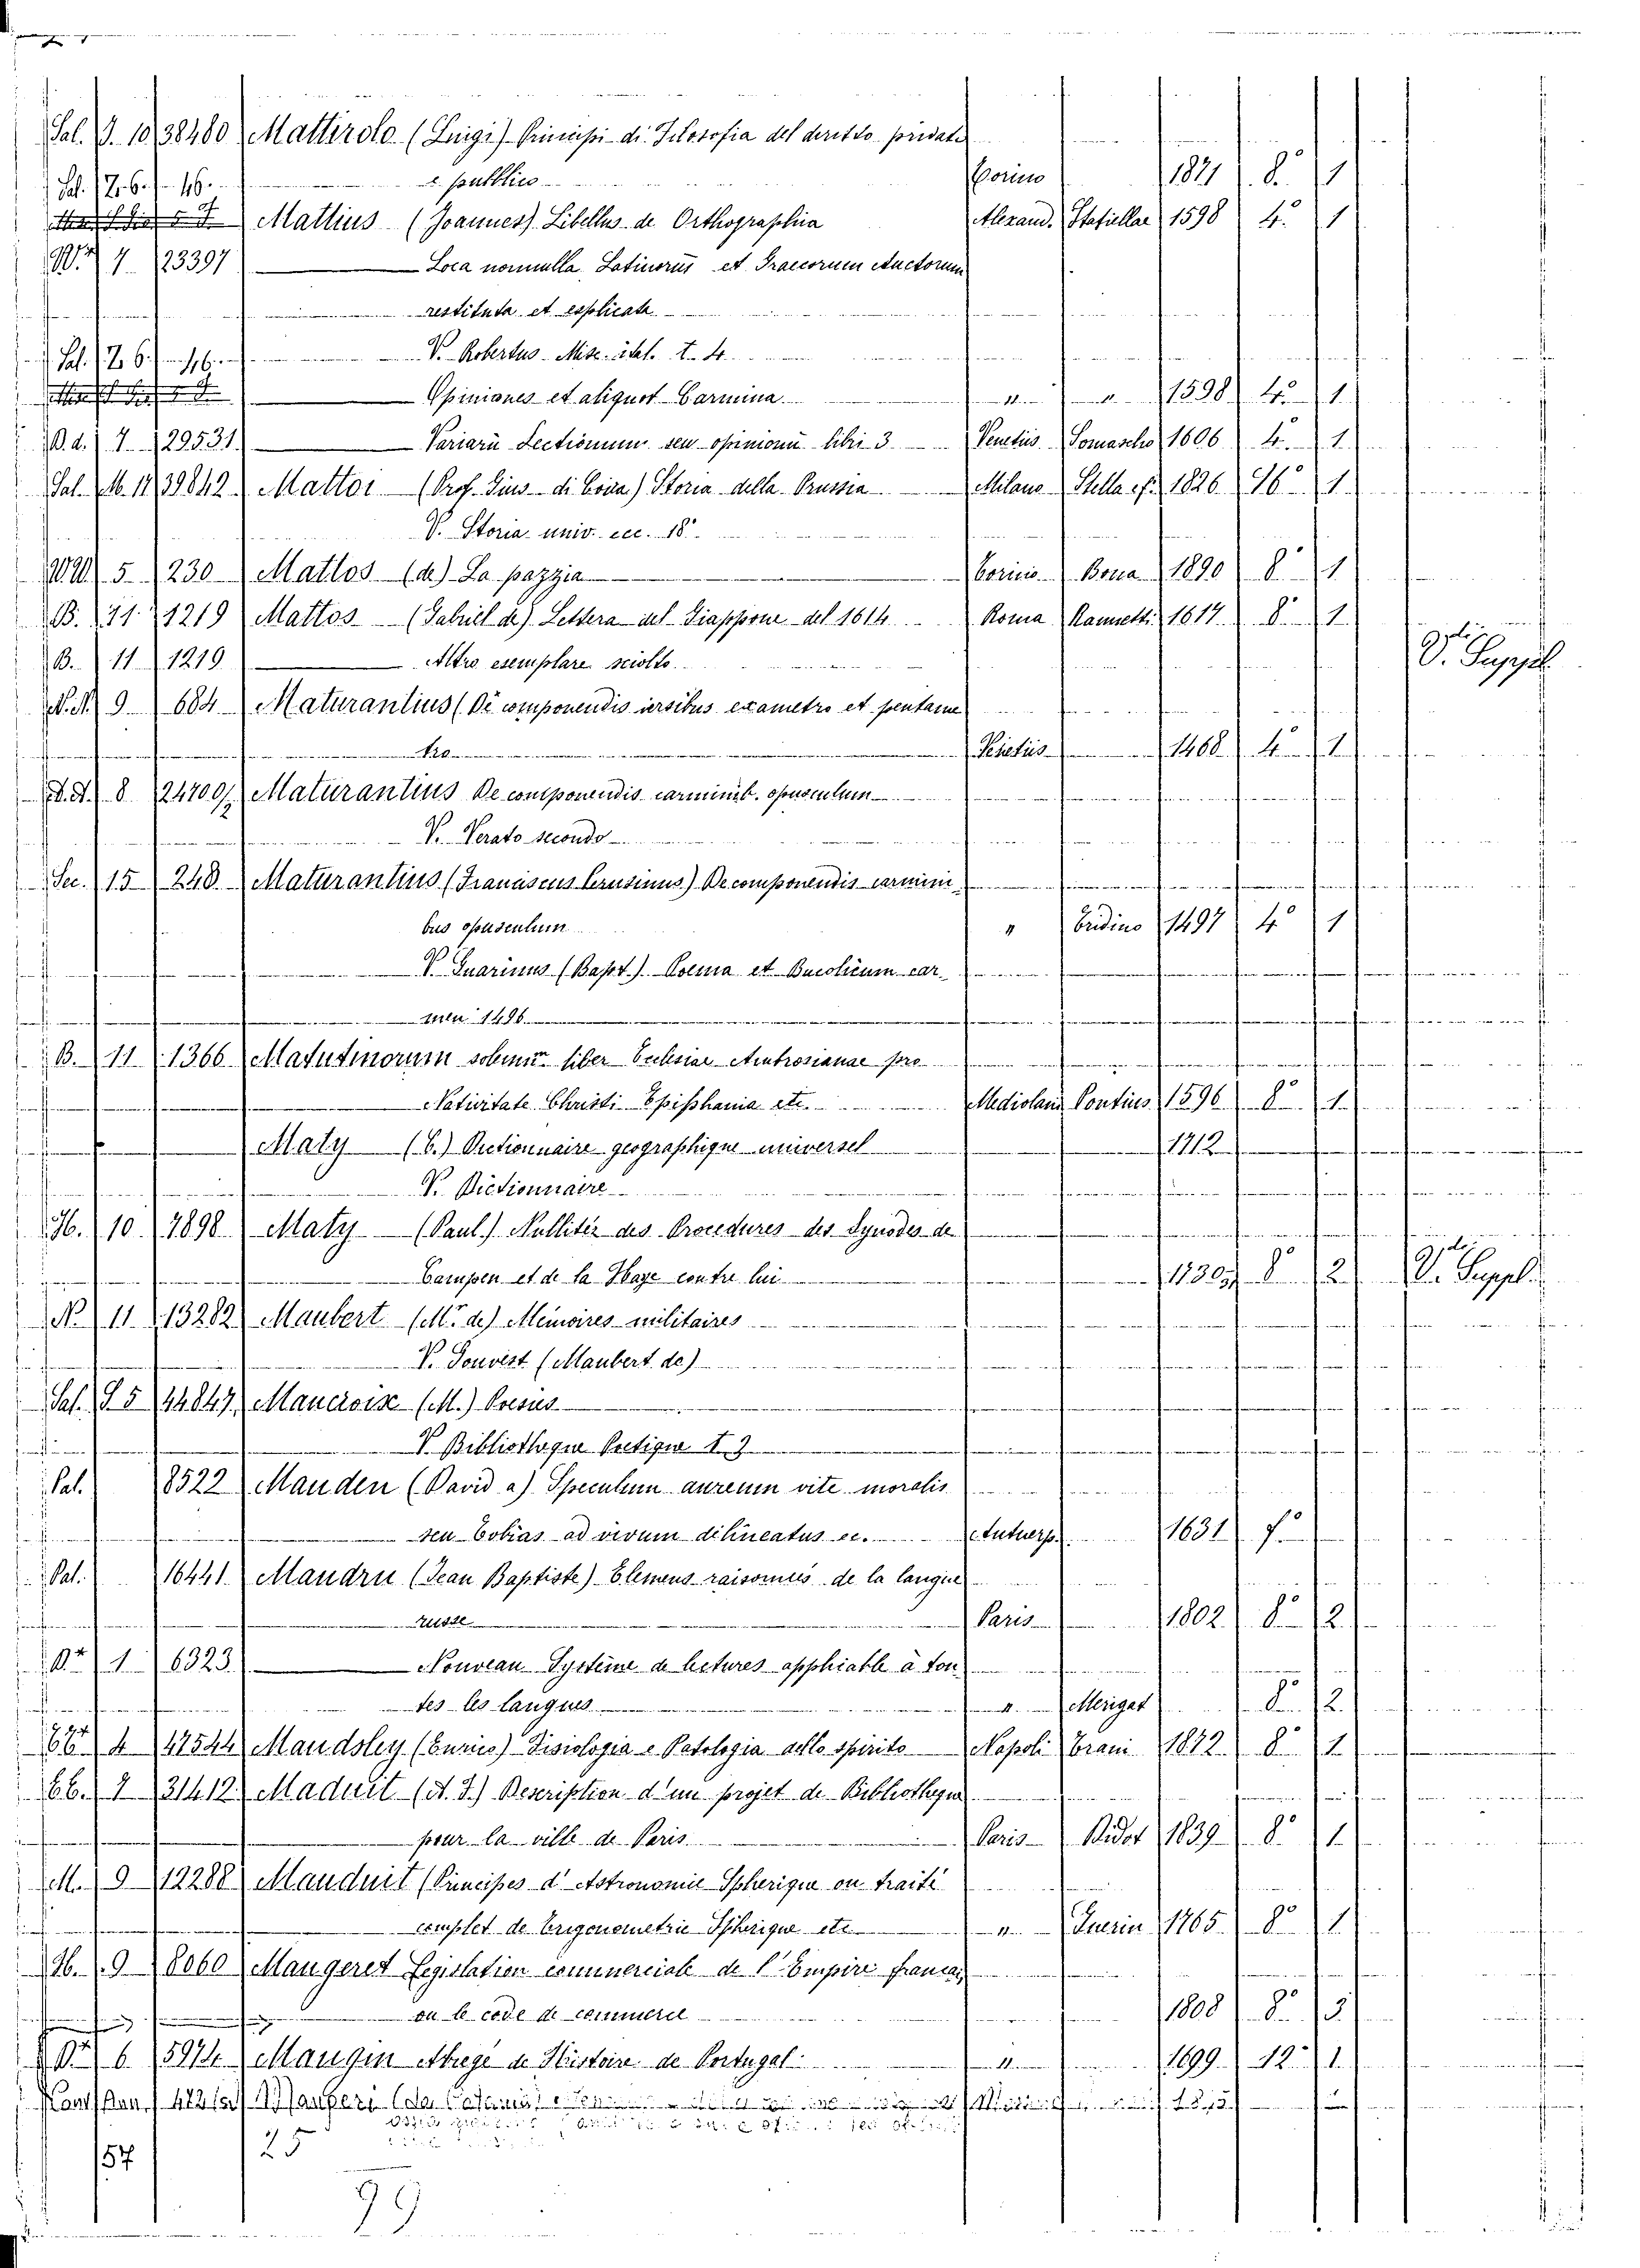 Sal. J. 10 38480 Mattirolo (Luigi) Principi di Filosofia del deritto privato
Sal. Z. 6. 46. e pubblico Torino 1871 8.° 1
Mattius (Joannes) Libellus de Orthographia Alexand. Stafiellae 1598 4.° 1
7 23397 Loca nonnulla Latinorū et Graecorum Auctorum
restituta et esplicata
Sal. Z. 6. 46. V. Robertus Misc. ital. t. 4
Opiniones et aliquot Carmina " " 1598 4° 1
B. d. 7 29531 Variarū Lectionum seu opinionū libri 3 Venetiis Somascho 1606 4. 1
Sal. M. 11 39842 Mattoi (Prof. Gius di Coira) Storia della Prussia Milano Stella ef. 1826 16° 1
V. Storia univ. ecc. 18°.
5 230 Mattos (de) La pazzia Torino Bona 1890 8° 1
B. 11 1219 Mattos (Gabriel de) Lettera del Giappone del 1614 Roma Rannetti 1617 8° 1
B. 11 1219 Altro esemplare sciolto V. Suppl
N. N. 9 684 Maturantius (De componendis versibus exametro et pentame
tro Venetiis 1468 4° 1
A. A. 8 24700/2 Maturantius De componendis carminib. opusculum
V. Verato secondo
Sec. 15 248 Maturantius (Franciscus Perusinus) De componendis carmini
bus opusculum " Tridino 1497 4° 1
V. Guarinus (Bapt.) Poema et Bucolicum car
men 1496
B. 11 1366 Matutinorum solemn. liber Ecclesiae Ambrosianae pro
Nativitate Christi Epiphania etc. Mediolani Pontius 1596 8° 1
Maty (C.) Dictionnaire geographique universel 1712
V. Dictionnaire
H. 10 7898 Maty (Paul) Nullitéz des Procedures des Synodes de
Campen et de la Haye contre lui 8° 2 V. Suppl.
N 11 13282 Maubert (M.r de) Mémoires militaires
V. Gouvest (Maubert de)
Sal. 5 44847 Maucroix (M.) Poesies
V. Bibliotheque Poetique t. 3
Pal. 8522 Mauden (David a) Speculum aureum vite moralis
seu Tobias ad vivum delineatus ec. Antuerp. 1631 f.°
Pal. 16441 Maudru (Jean Baptiste) Elemens raisonnés de la langue
russe Paris 1802 8° 2
1 6323 Nouveau Systéme de lectures applicable à tou
tes les langues " Merigat 8° 2
4 47544 Maudsley (Enrico) Fisiologia e Patologia dello spirito Napoli Trani 1872 8° 1
bb. 7 31412 Maduit (A. F.) Description d'un projet de Bibliotheque
pour la ville de Paris Paris Didot 1839 8° 1
M. 9 12288 Mauduit (Principes d'Astronomie Spherique ou traité
complet de Trigonometrie Spherique etc " Guerin 1765 8° 1
H. 9 8060 Maugeret Legislation commerciale de l'Empire francais
ou le code de commerce 1808 8° 3
6 5974 Maugin Abregé de Histoire de Portugal " 1699 12° 1
Maugeri (da Catania)
57 25
99